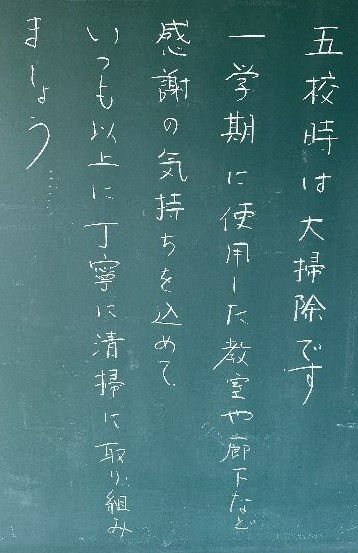 五校時は大掃除です
一学期に使用した教室や廊下など
感謝の気持ちを込めて
いつも以上に丁寧に清掃に取り組み
ましょう